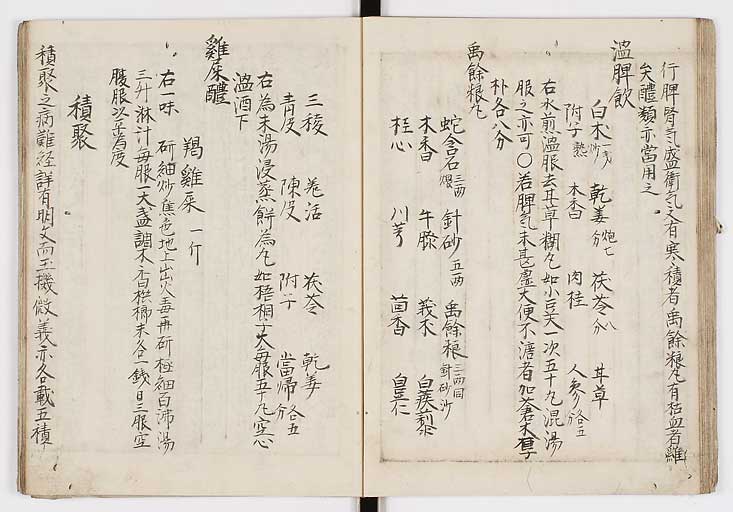 行脾腎氣盛衛氣又有寒積者禹餘粮丸有枯血者雞
矢醴類亦當用之
溫脾飲
白朮炒一戔 乾姜炮七分 茯苓八分 甘草
附子熟 木香 肉桂 人參各五分
右水煎溫服去甘草糊丸如小豆大一次五十丸混湯
服之亦可〇若脾氣未甚虛大便不溏者加蒼朮厚
朴各八分
禹餘粮丸
蛇含石煅三两 針砂五两 禹餘粮三两同針砂炒
木香 牛膝 莪朮 白疾藜
桂心 川芎 茴香 白豆仁
三稜 羗活 茯苓 乾姜
青皮 陳皮 附子 當帰各五分
右為末湯浸蒸餅為丸如梧桐子大每服五十丸空心
溫酒下
雞屎醴
羯雞屎一斤
右一味 研細炒焦色地上出火毒再研極細百沸湯
三升淋汁每服一大盞調木香檳榔末各一錢日三服空
腹服以平為度
積聚
積聚之病難経詳有明文而玉機微義亦各載五積